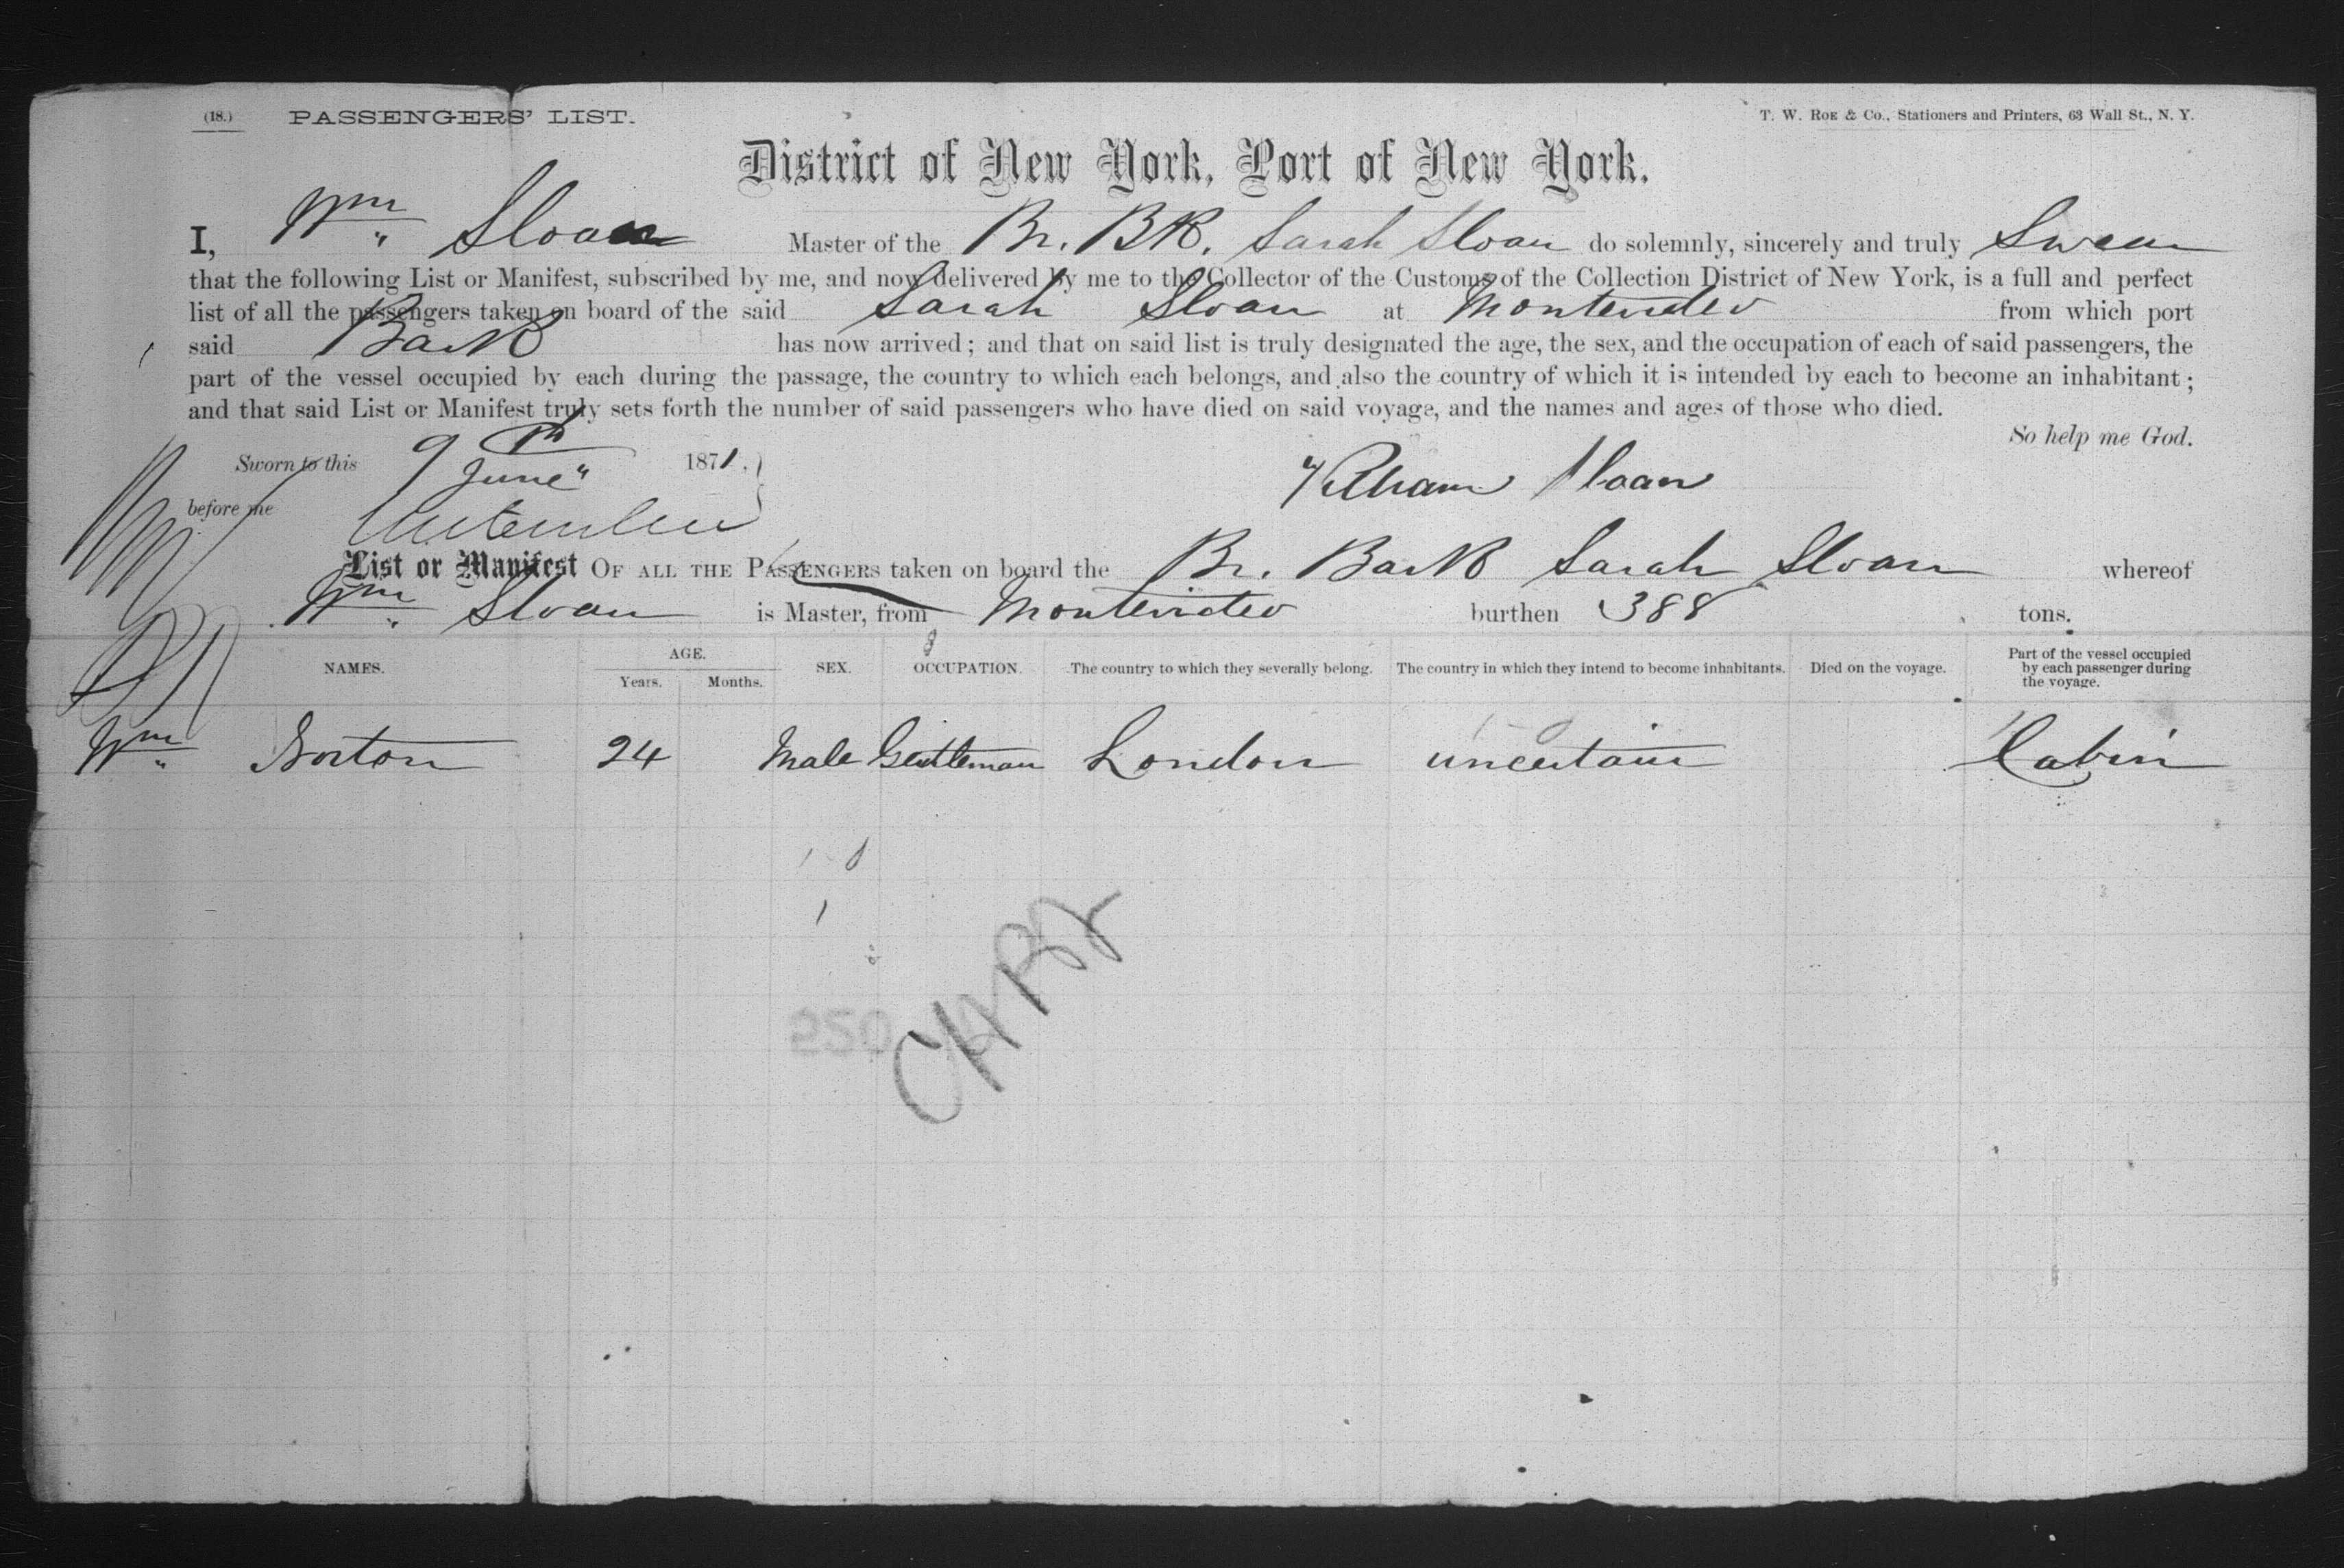 (18.) PASSENGERS' LIST. T. W. ROE & Co., Stationers and Printers, 63 Wall St., N. Y.
District of New York, Port of New York.
I, Wm Sloan Master of the Br. BK. Sarah Sloan do solemnly, sincerely and truly Swear
that the following List or Manifest, subscribed by me, and now delivered by me to the Collector of the Customs of the Collection District of New York, is a full and perfect
list of all the passengers taken on board of the said Sarah Sloan at Montevideo from which port
said Bark has now arrived; and that on said list is truly designated the age, the sex, and the occupation of each of said passengers, the
part of the vessel occupied by each during the passage, the country to which each belongs, and also the country of which it is intended by each to become an inhabitant;
and that said List or Manifest truly sets forth the number of said passengers who have died on said voyage, and the names and ages of those who died.
So help me God.
Sworn to this 9th June 1871.
William Sloan
before me
List or Manifest OF ALL THE PASSENGERS taken on board the Br. Bark Sarah Sloan whereof
Wm Sloan is Master, from Montevideo burthen 388 tons.
NAMES. AGE. Years. Months. SEX. OCCUPATION. The country to which they severally belong. The country in which they intend to become inhabitants. Died on the voyage. Part of the vessel occupied by each passenger during the voyage.
Wm Norton 24 Male Gentleman London uncertain Cabin